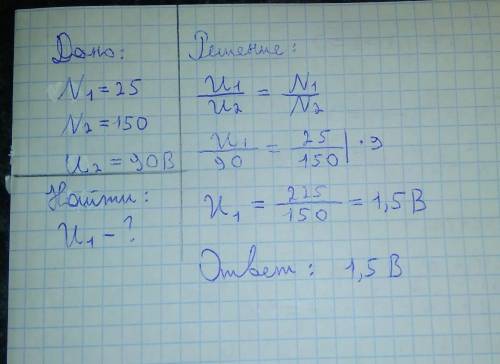 Дано:
N1 = 25
N2 = 150
U2 = 90В
Найти:
U1 - ?
Решение:
U1/U2 = N1/N2
U1/90 = 25/150 | · 9
U1 = 225/150 = 1,5 В
Ответ: 1,5 В